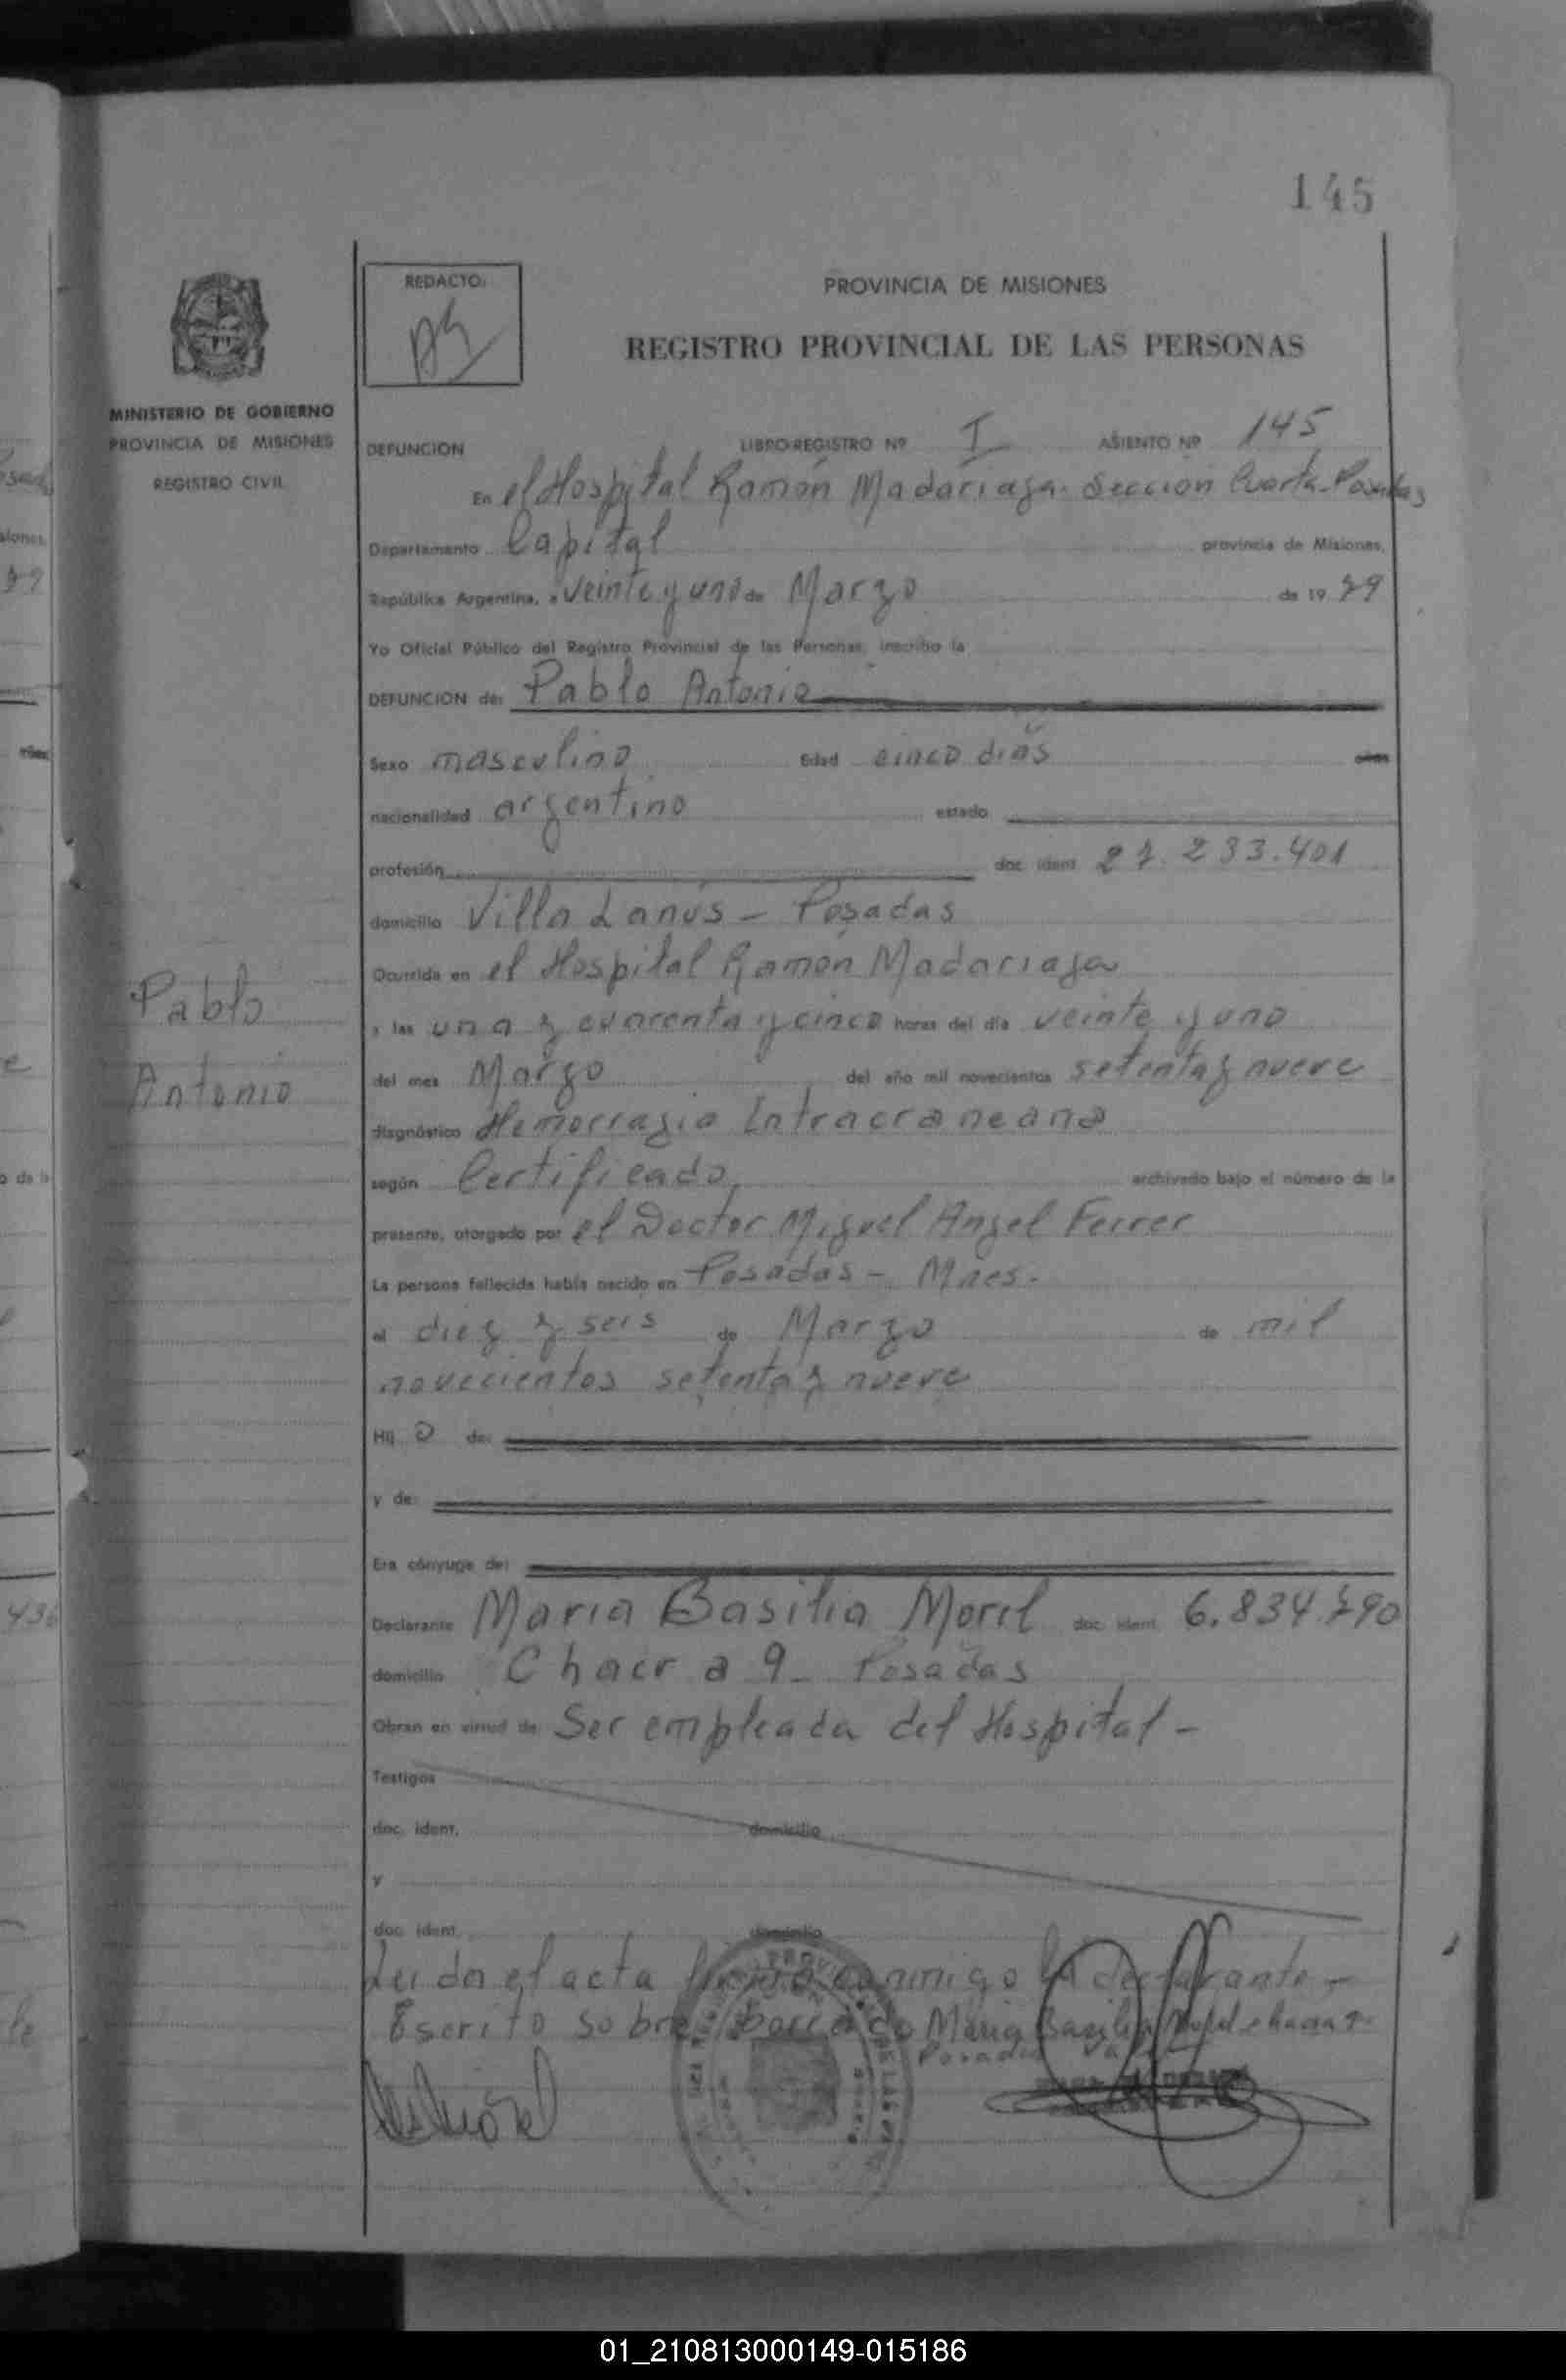 145
REDACTO:
PROVINCIA DE MISIONES
REGISTRO PROVINCIAL DE LAS PERSONAS
MINISTERIO DE GOBIERNO
PROVINCIA DE MISIONES
REGISTRO CIVIL
DEFUNCION LIBRO-REGISTRO Nº I ASIENTO Nº 145
En el Hospital Ramón Madariaga. Sección Cuarta-Posadas
Departamento Capital provincia de Misiones,
República Argentina, a veinte y uno de Marzo de 19 79
Yo Oficial Público del Registro Provincial de las Personas, inscribo la
DEFUNCION de: Pablo Antonio
Sexo masculino Edad cinco dias
nacionalidad argentino estado
profesión doc. ident. 27.233.401
domicilio Villa Lanús - Posadas
Ocurrida en el Hospital Ramón Madariaga
a las una y cuarenta y cinco horas del día veinte y uno
del mes Marzo del año mil novecientos setenta y nueve
diagnóstico Hemorragia Intracraneana
según Certificado archivado bajo el número de la
presente, otorgado por el Doctor Miguel Angel Ferrer
La persona fallecida había nacido en Posadas - Mnes.
el diez y seis de Marzo de mil
novecientos setenta y nueve
Hij o de:
y de:
Era cónyuge de:
Declarante Maria Basilia Morel doc. ident. 6.834.790
domicilio Chacra 9 - Posadas
Obran en virtud de Ser empleada del Hospital -
Testigos
doc. ident. domicilio
y
doc. ident. domicilio
Leida el acta conmigo la declarante -
Escrito sobre borrado Maria Basilia
Posadas
Pablo
Antonio
01_210813000149-015186